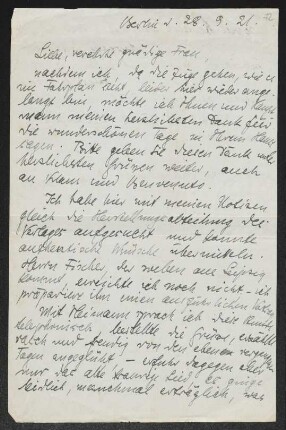 Berlin d. 28. 9. 21.
Liebe, verehrte gnädige Frau,
nachdem ich, da die Züge gehen, wie es
im Fahrplan steht, hier wieder ange-
langt bin, möchte ich Ihnen und
mann meinen herzlichsten Dank für
die wunderschönen Tage in Ihrem Hause
sagen. Bitte geben Sie diesen Dank und
herzlichsten Grüssen weiter, auch
an Klaus und Benvenuto.
Ich habe hier mit meinen Notizen
gleich die Herstellungsabteilung des
Verlages aufgesucht und konnte
authentische Wünsche übermitteln.
Herrn Fischer, der
konnte, erreichte ich noch nicht - ich
präpariere ihm einen ausführlichen
Mit Heimann sprach ich
telephonisch, bestellte die Grüsse, erzählte
rasch und von den eben
Tagen - erfuhr dagegen aber
nur das alte es ginge
leidlich, manchmal erträglich, was